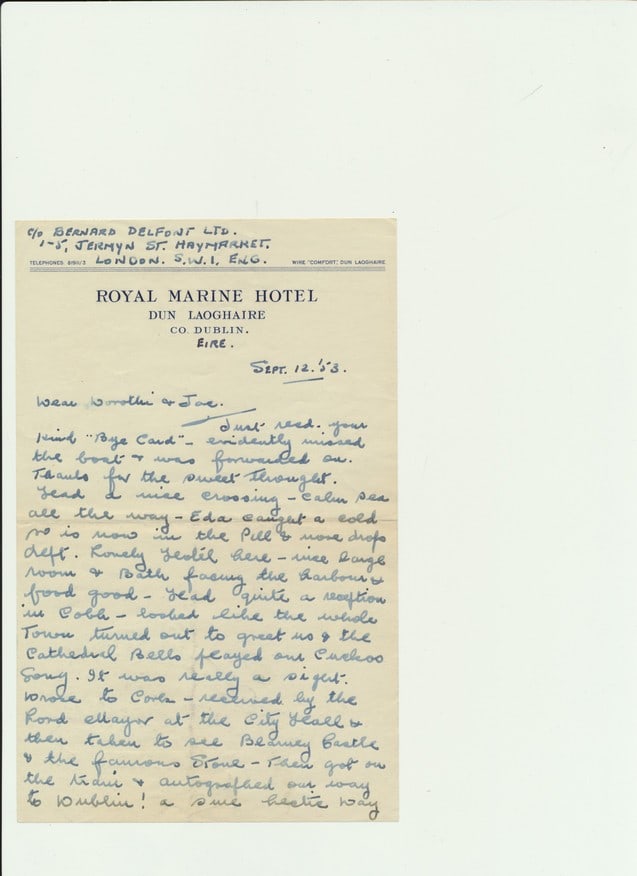 c/o BERNARD DELFONT LTD.
1-5, JERMYN ST. HAYMARKET.
TELEPHONES 81911/3 LONDON. S.W.1, ENG. WIRE "COMFORT," DUN LAOGHAIRE
ROYAL MARINE HOTEL
DUN LAOGHAIRE
CO. DUBLIN.
EIRE.
SEPT. 12. '53.
Dear Dorothi & Joe.
Just recd. your
kind "Bye Card" - evidently missed
the boat & was forwarded on.
Thanks for the sweet thought.
Had a nice crossing - calm sea
all the way - Eda caught a cold
so is now in the Pill & nose drops
dept. Lovely Hotel here - nice large
room & Bath facing the harbour &
food good - Had quite a reception
in Cobh - looked like the whole
Town turned out to greet us & the
Cathedral Bells played our Cuckoo
Song. It was really a sight.
Drove to Cork - received by the
Lord Mayor at the City Hall &
then taken to see Blarney Castle
& the famous Stone - Then got on
the train & autographed our way
to Dublin! a sure hectic Day